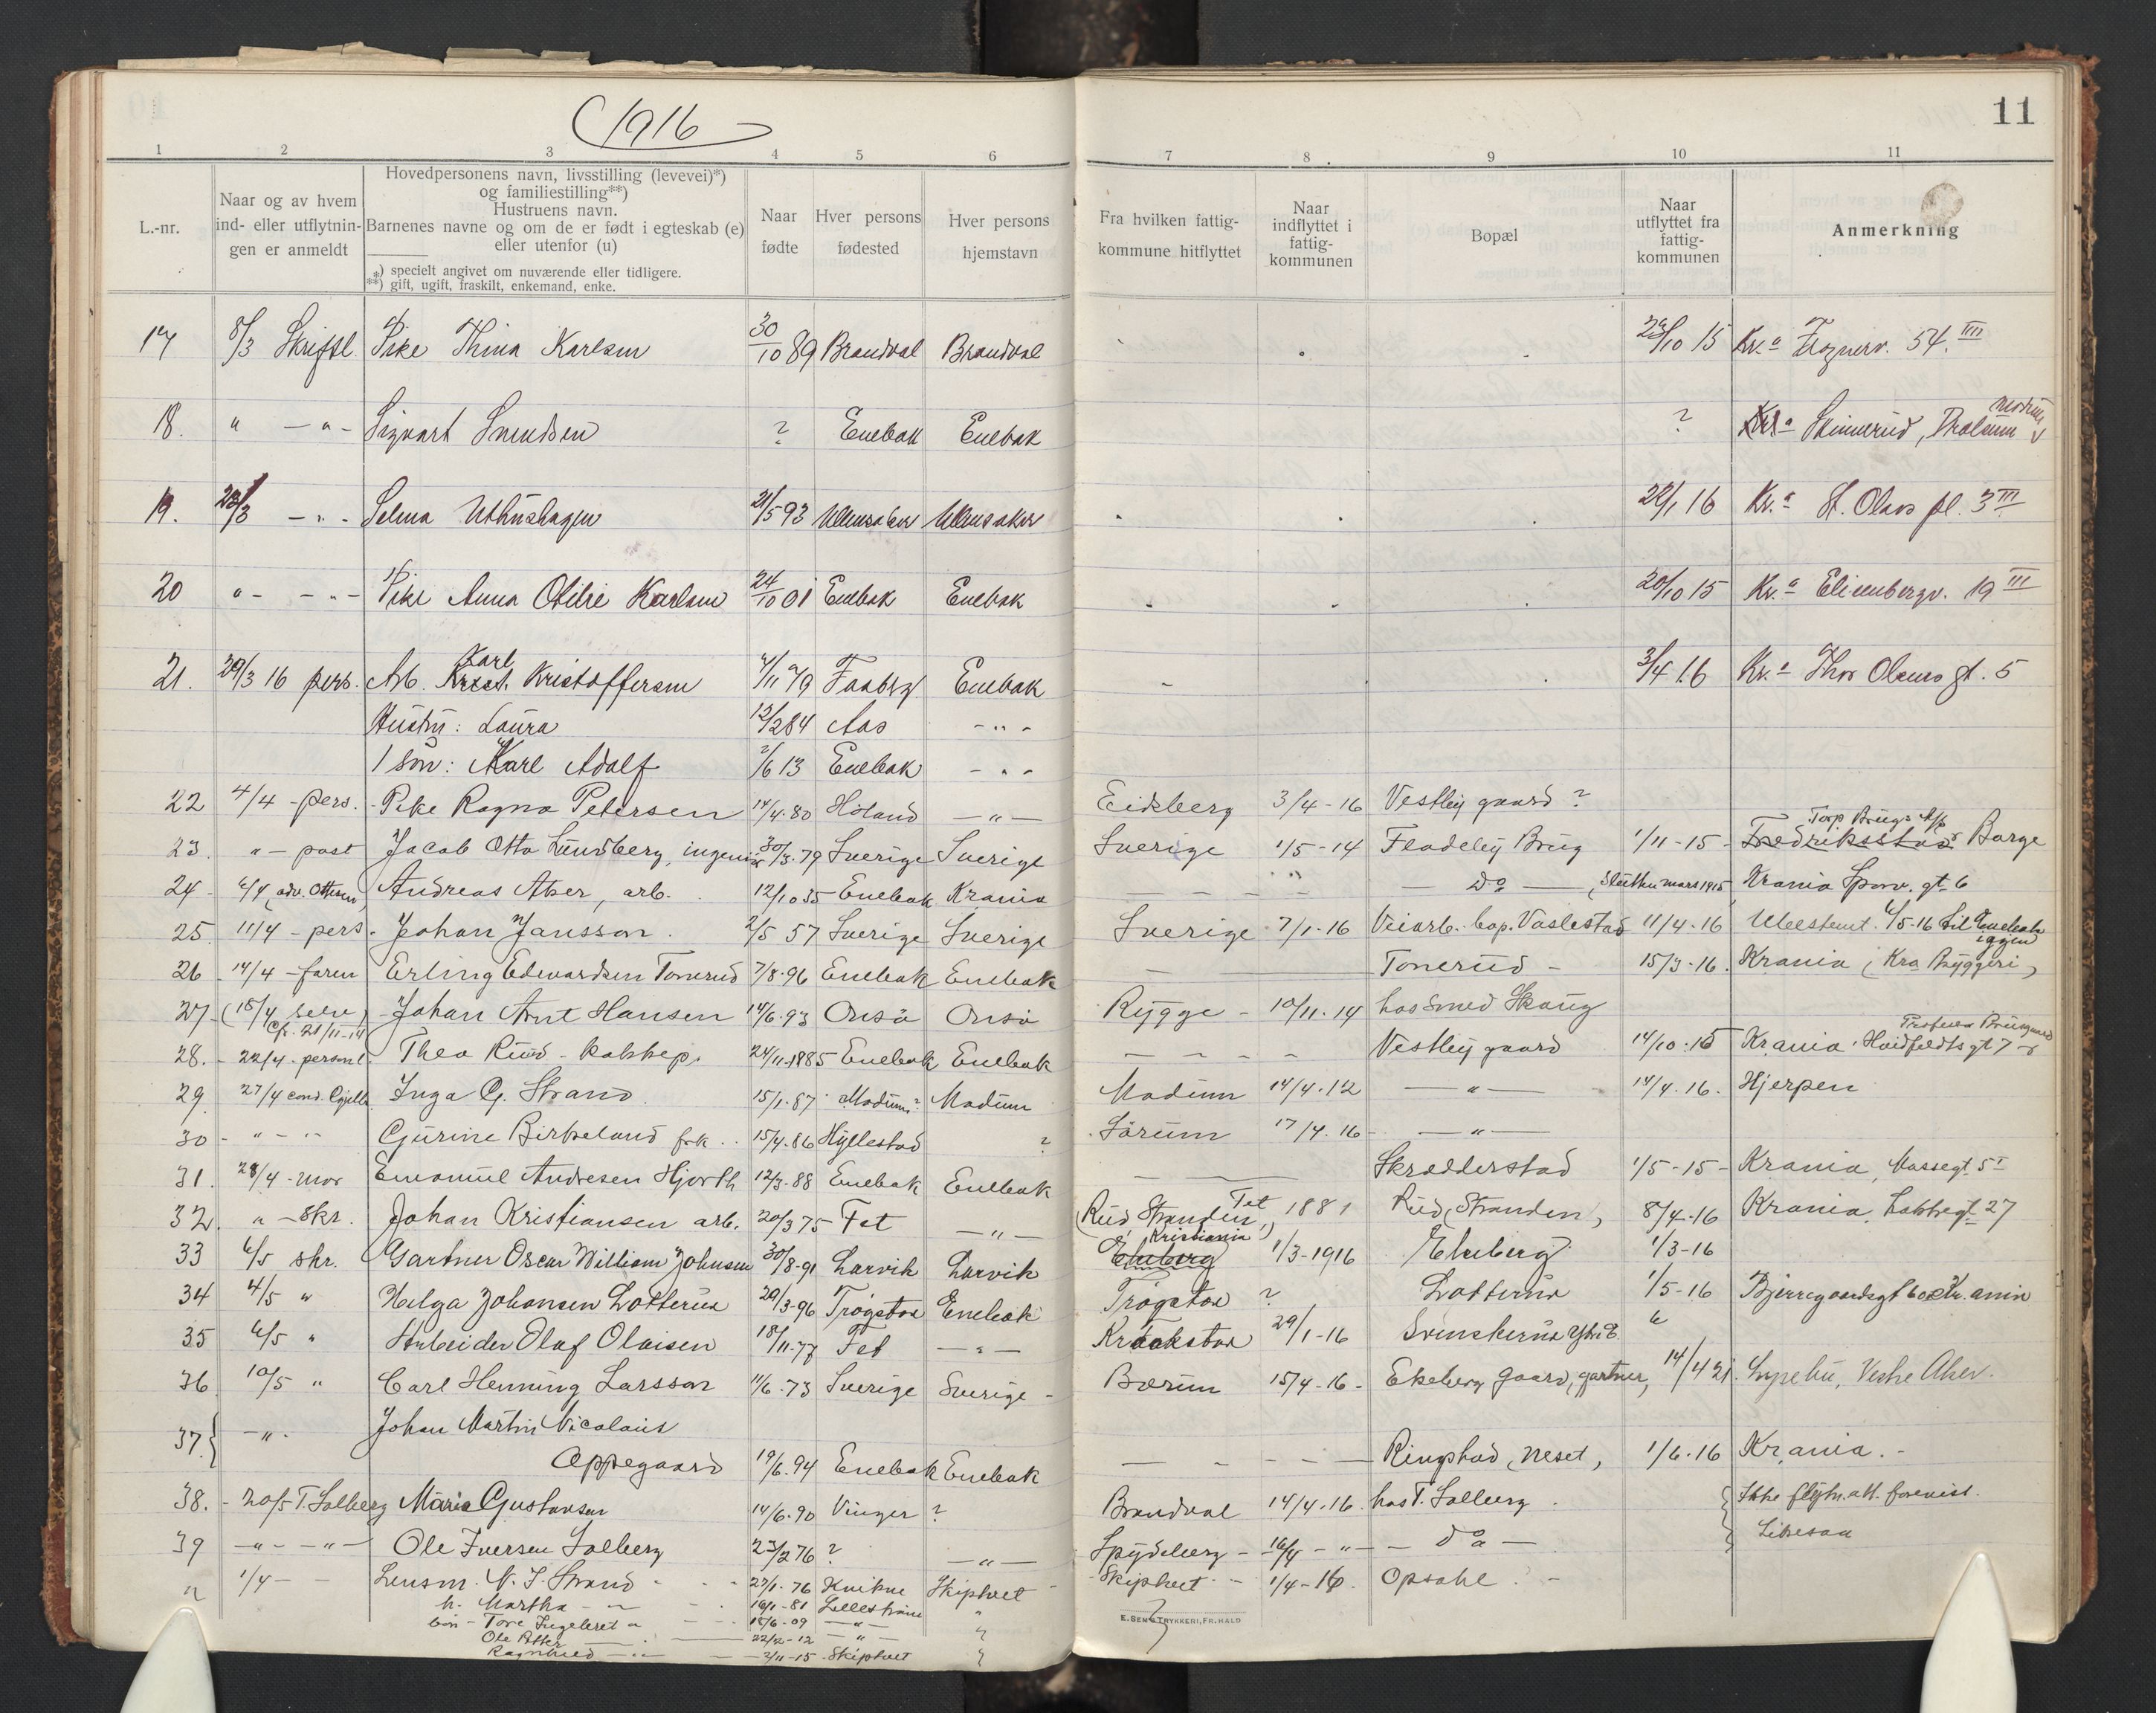 (1916
11
1 2 3 4 5 6 7 8 9 10 11
L.-nr.
Naar og av hvem
ind- eller utflytnin-
gen er anmeldt
Hovedpersonens navn, livsstilling (levevei)*)
og familiestilling**)
Hustruens navn.
Barnenes navne og om de er født i egteskab (e)
eller utenfor (u)
*) specielt angivet om nuværende eller tidligere.
**) gift, ugift, fraskilt, enkemand, enke.
Naar
fødte
Hver persons
fødested
Hver persons
hjemstavn
Fra hvilken fattig-
kommune hitflyttet
Naar
indflyttet i
fattig-
kommunen
Bopæl
Naar
utflyttet fra
fattig-
kommunen
Anmerkning
17 8/3 Skriftl. Pike Thina Karlsen 30/10 89 Brandval Brandval 10 15 Kr.a Frognerv. 54 III
18. " - " - Sigvart Svendsen ? Enebak Enebak ? Skinnerud, Modum
19. - " - Selma 21/5 93 Ullensaker Ullensaker 22/1 16 Kr.a St. Olavs pl. 3 III
20 " - - " - Pike Anna Otilie Karlsen 24/10 01 Enebak Enebak 20/10 15 Kr.a Elisenbergv. 19 III
21. 29/3 16 pers. Arb. Karl Kristoffersen 4/11 79 Faaberg Enebak 3/4 16 Kr.a Thor Olsens gt. 5
Hustru: Laura 12/2 84 Aas - " -
1 søn: Karl Adolf 2/6 13 Enebak - " -
22 4/4 - pers. Pike Ragna Petersen 14/4. 80 Höland - " - Eidsberg 3/4 - 16 Vestby gaard ?
23. " - post Jacob Otto Lundberg, ingeniør 30/3. 79 Sverige Sverige Sverige 1/5 - 14 Fladeby Brug 1/11 - 15 - Torp Brug Fredriksstad Borge
24 - 6/4 adv. Andreas Aker, arb. 12/10 35 Enebak Krania - Do - Slutten mars 1915 Krania gt. 6
25. 11/4 - pers. Johan Jansson. 2/5 57 Sverige Sverige Sverige 7/1 - 16 Veiarb. Vaslestad 11/4 - 16 Ubestemt. 6/5 - 16 til Enebak
igjen
26 14/4 - faren Erling Edvardsen Tonerud 7/8 - 96 Enebak Enebak - Tonerud - 15/3 - 16. Krania (Kra Bryggeri)
27 - (18/4 selv) Johan Arnt Hansen 14/6. 93 Onsö Onsö Rygge - 10/11. 14 hos smed Skaug
28. - 22/4 - personl. Thea Ruud - kokkep. 24/11 - 1885 Enebak Enebak - - - - Vestby gaard 14/10 - 15 Krania Huidfeldts gt 7
29. 27/4 Inga G. Strand. 15/1. 87 Modum? Modum Modum 14/4. 12 - " - 14/4. 16. Hjerpen
30 - " - " Gurine Birkeland frk. 15/4. 86 Hyllestad ? Sörum 17/4. 16 - - " -
31. 28/4 - mor Emanuel Andresen Hjorth 12/3. 88 Enebak Enebak - Skrædderstad 1/5 - 15 - Krania, Mossegt. 5 I
32. " - Skr. Johan Kristiansen arb. 20/3 75 Fet - " - (Rud Stranden, Fet) 1881 Rud (Stranden, 8/4 - 16 Krania, 27
33 6/5 skr. Gartner Oscar William Johnsen 30/8 - 91 Larvik Larvik Kristiania Ekeberg 1/3 - 1916 Ekeberg 1/3 - 16
34 4/5 " Helga Johansen Lotterud 29/3 - 96 Trögstad Enebak Trögstad ? Lotterud 1/5 - 16 Bjerregaardsgt 60 Kr.ania
35 6/5 " Arbeider Olaf Olaisen 18/11 - 77 Fet - " - Kraakstad 29/1 - 16 "
36. 10/5 " Carl Henning Larsson 11/6. 73 Sverige Sverige - Bærum 15/4 - 16 - Ekeberg gaard, gartner, 14/4 21. Vestre Aker.
37. { - " - Johan Martin Nicolaus
Oppegaard 19/6. 94 Enebak Enebak - - - - Ringstad (Neset, 1/6. 16 Krania. -
38. - 20/5 T. Solberg Marie Gustavsen 14/6. 90 Vinger ? Brandval 14/4. 16. hos T. Solberg. Ikke flytn. att. forevist.
39 - " - - " - Ole Iversen Solberg 23/2 76 ? - " - Spydeberg - 16/4 - " - - do - Likesaa
" 1/4 - - Lensm. N. J. Strand 27/1. 76 Kvikne Skiptvet Skiptvet - 1/4 - 16. Opsahl. -
h. Martha - " - 16/1 - 81 Lillestrøm "
børn - Tore Ingebret " 18/6 - 09 - " - "
Ole Petter - " - 22/2 - 12 - " - "
Ragnhild - " - 2/11 - 15 - Skiptvet "
E. SEM'S TRYKKERI, FR.HALD